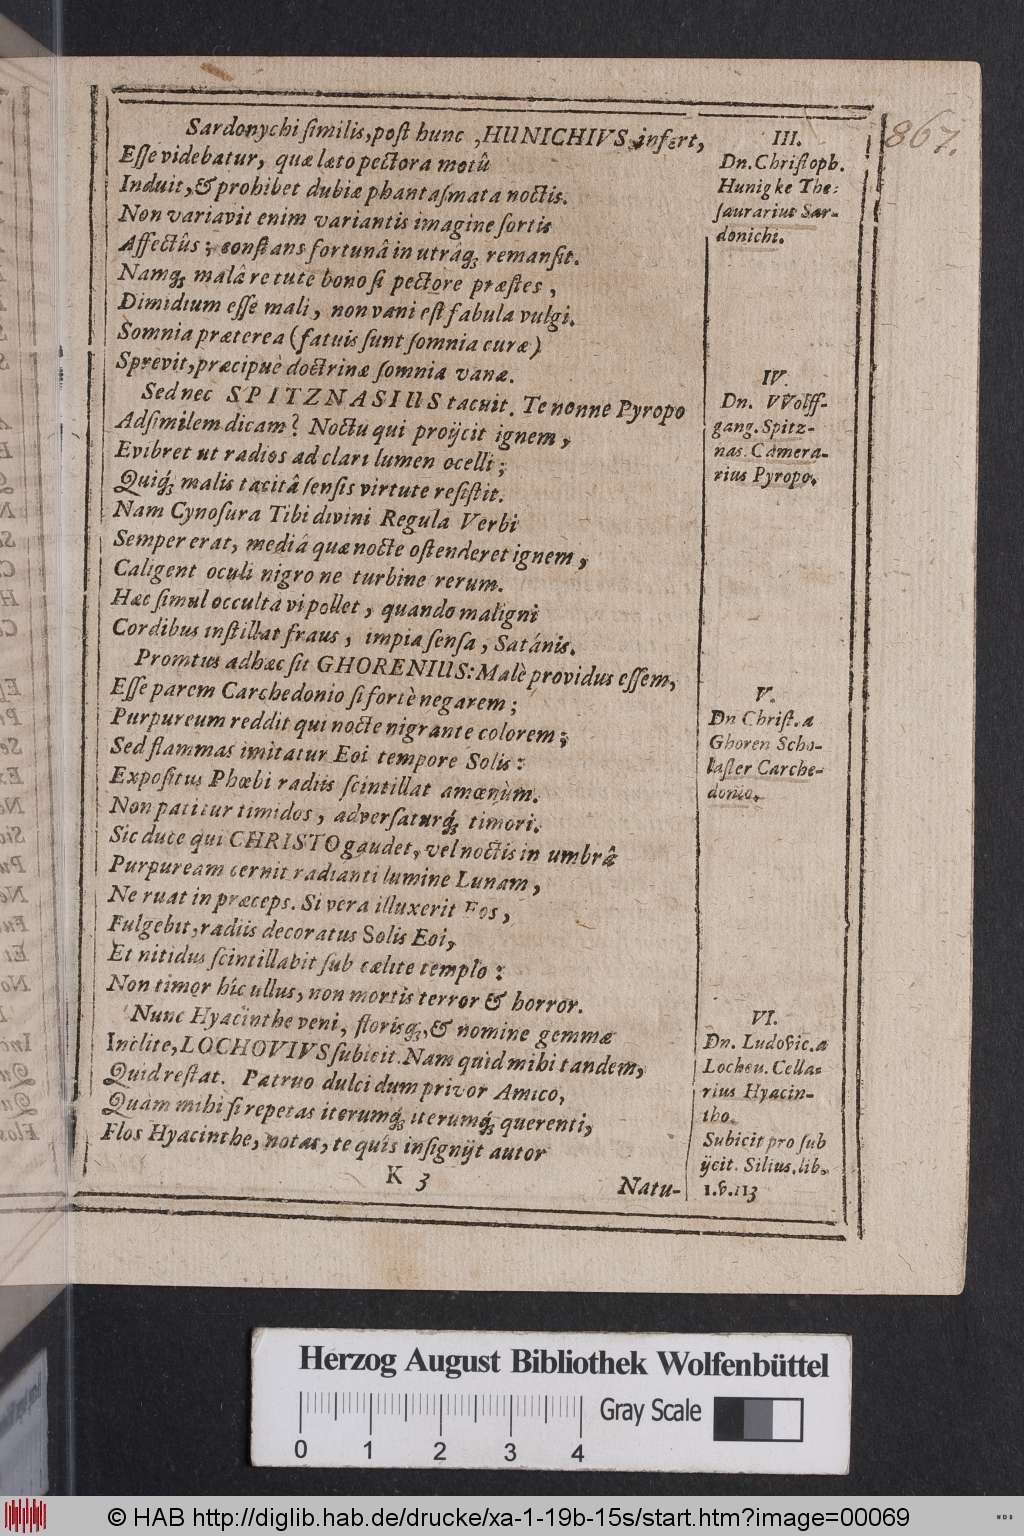 867.
Sardonychi ſimilis, poſt hunc, HUNICHIVS infert,
Eſſe videbatur, quæ læto pectora motû
Induit, & prohibet dubiæ phantaſmata noctis.
Non variavit enim variantis imagine ſortis
Affectûs; conſtans fortunâ in utráq; remanſit.
Namq; malâ re tute bono ſi pectore præſtes,
Dimidium eſſe mali, non vani eſt fabula vulgi.
Somnia præterea (fatuis ſunt ſomnia curæ)
Sprevit, præcipuè doctrinæ ſomnia vanæ.
Sed nec SPITZNASIUS tacuit. Te nonne Pyropo
Adſimilem dicam? Noctu qui proijcit ignem,
Evibret ut radios ad clari lumen ocelli;
Quiq; malis tacitâ ſenſis virtute reſiſtit.
Nam Cynoſura Tibi divini Regula Verbi
Semper erat, mediâ quæ nocte oſtenderet ignem,
Caligent oculi nigro ne turbine rerum.
Hæc ſimul occulta vi pollet, quando maligni
Cordibus inſtillat fraus, impia ſenſa, Satánis.
Promtus adhæc ſit GHORENIUS: Malè providus eſſem,
Eſſe parem Carchedonio ſi fortè negarem;
Purpureum reddit qui nocte nigrante colorem;
Sed flammas imitatur Eoi tempore Solis:
Expoſitus Phœbi radiis ſcintillat amœnùm.
Non patitur timidos, adverſaturq; timori.
Sic duce qui CHRISTO gaudet, vel noctis in umbrâ
Purpuream cernit radianti lumine Lunam,
Ne ruat in præceps. Si vera illuxerit Eos,
Fulgebit, radiis decoratus Solis Eoi,
Et nitidus ſcintillabit ſub cælite templo:
Non timor hîc ullus, non mortis terror & horror.
Nunc Hyacinthe veni, floriſq;, & nomine gemmæ
Inclite, LOCHOVIVS ſubicit. Nam quid mihi tandem,
Quid reſtat. Patruo dulci dum privor Amico,
Quàm mihi ſi repetas iterumq; iterumq; querenti,
Flos Hyacinthe, notas, te quis inſignijt autor
K 3
Natu-
III.
Dn. Chriſtoph.
Hunigke The:
ſaurarius Sar-
donichi.
IV.
Dn. VVolff-
gang. Spitz-
nas. Camera-
rius Pyropo.
V.
Dn Chriſt. a
Ghoren Scho-
laſter Carche-
donio.
VI.
Dn. Ludovic. a
Lochou. Cella-
rius Hyacin-
tho.
Subicit pro ſub
ijcit. Silius. lib.
1. v. 113
Herzog August Bibliothek Wolfenbüttel
0 1 2 3 4
Gray Scale
© HAB http://diglib.hab.de/drucke/xa-1-19b-15s/start.htm?image=00069